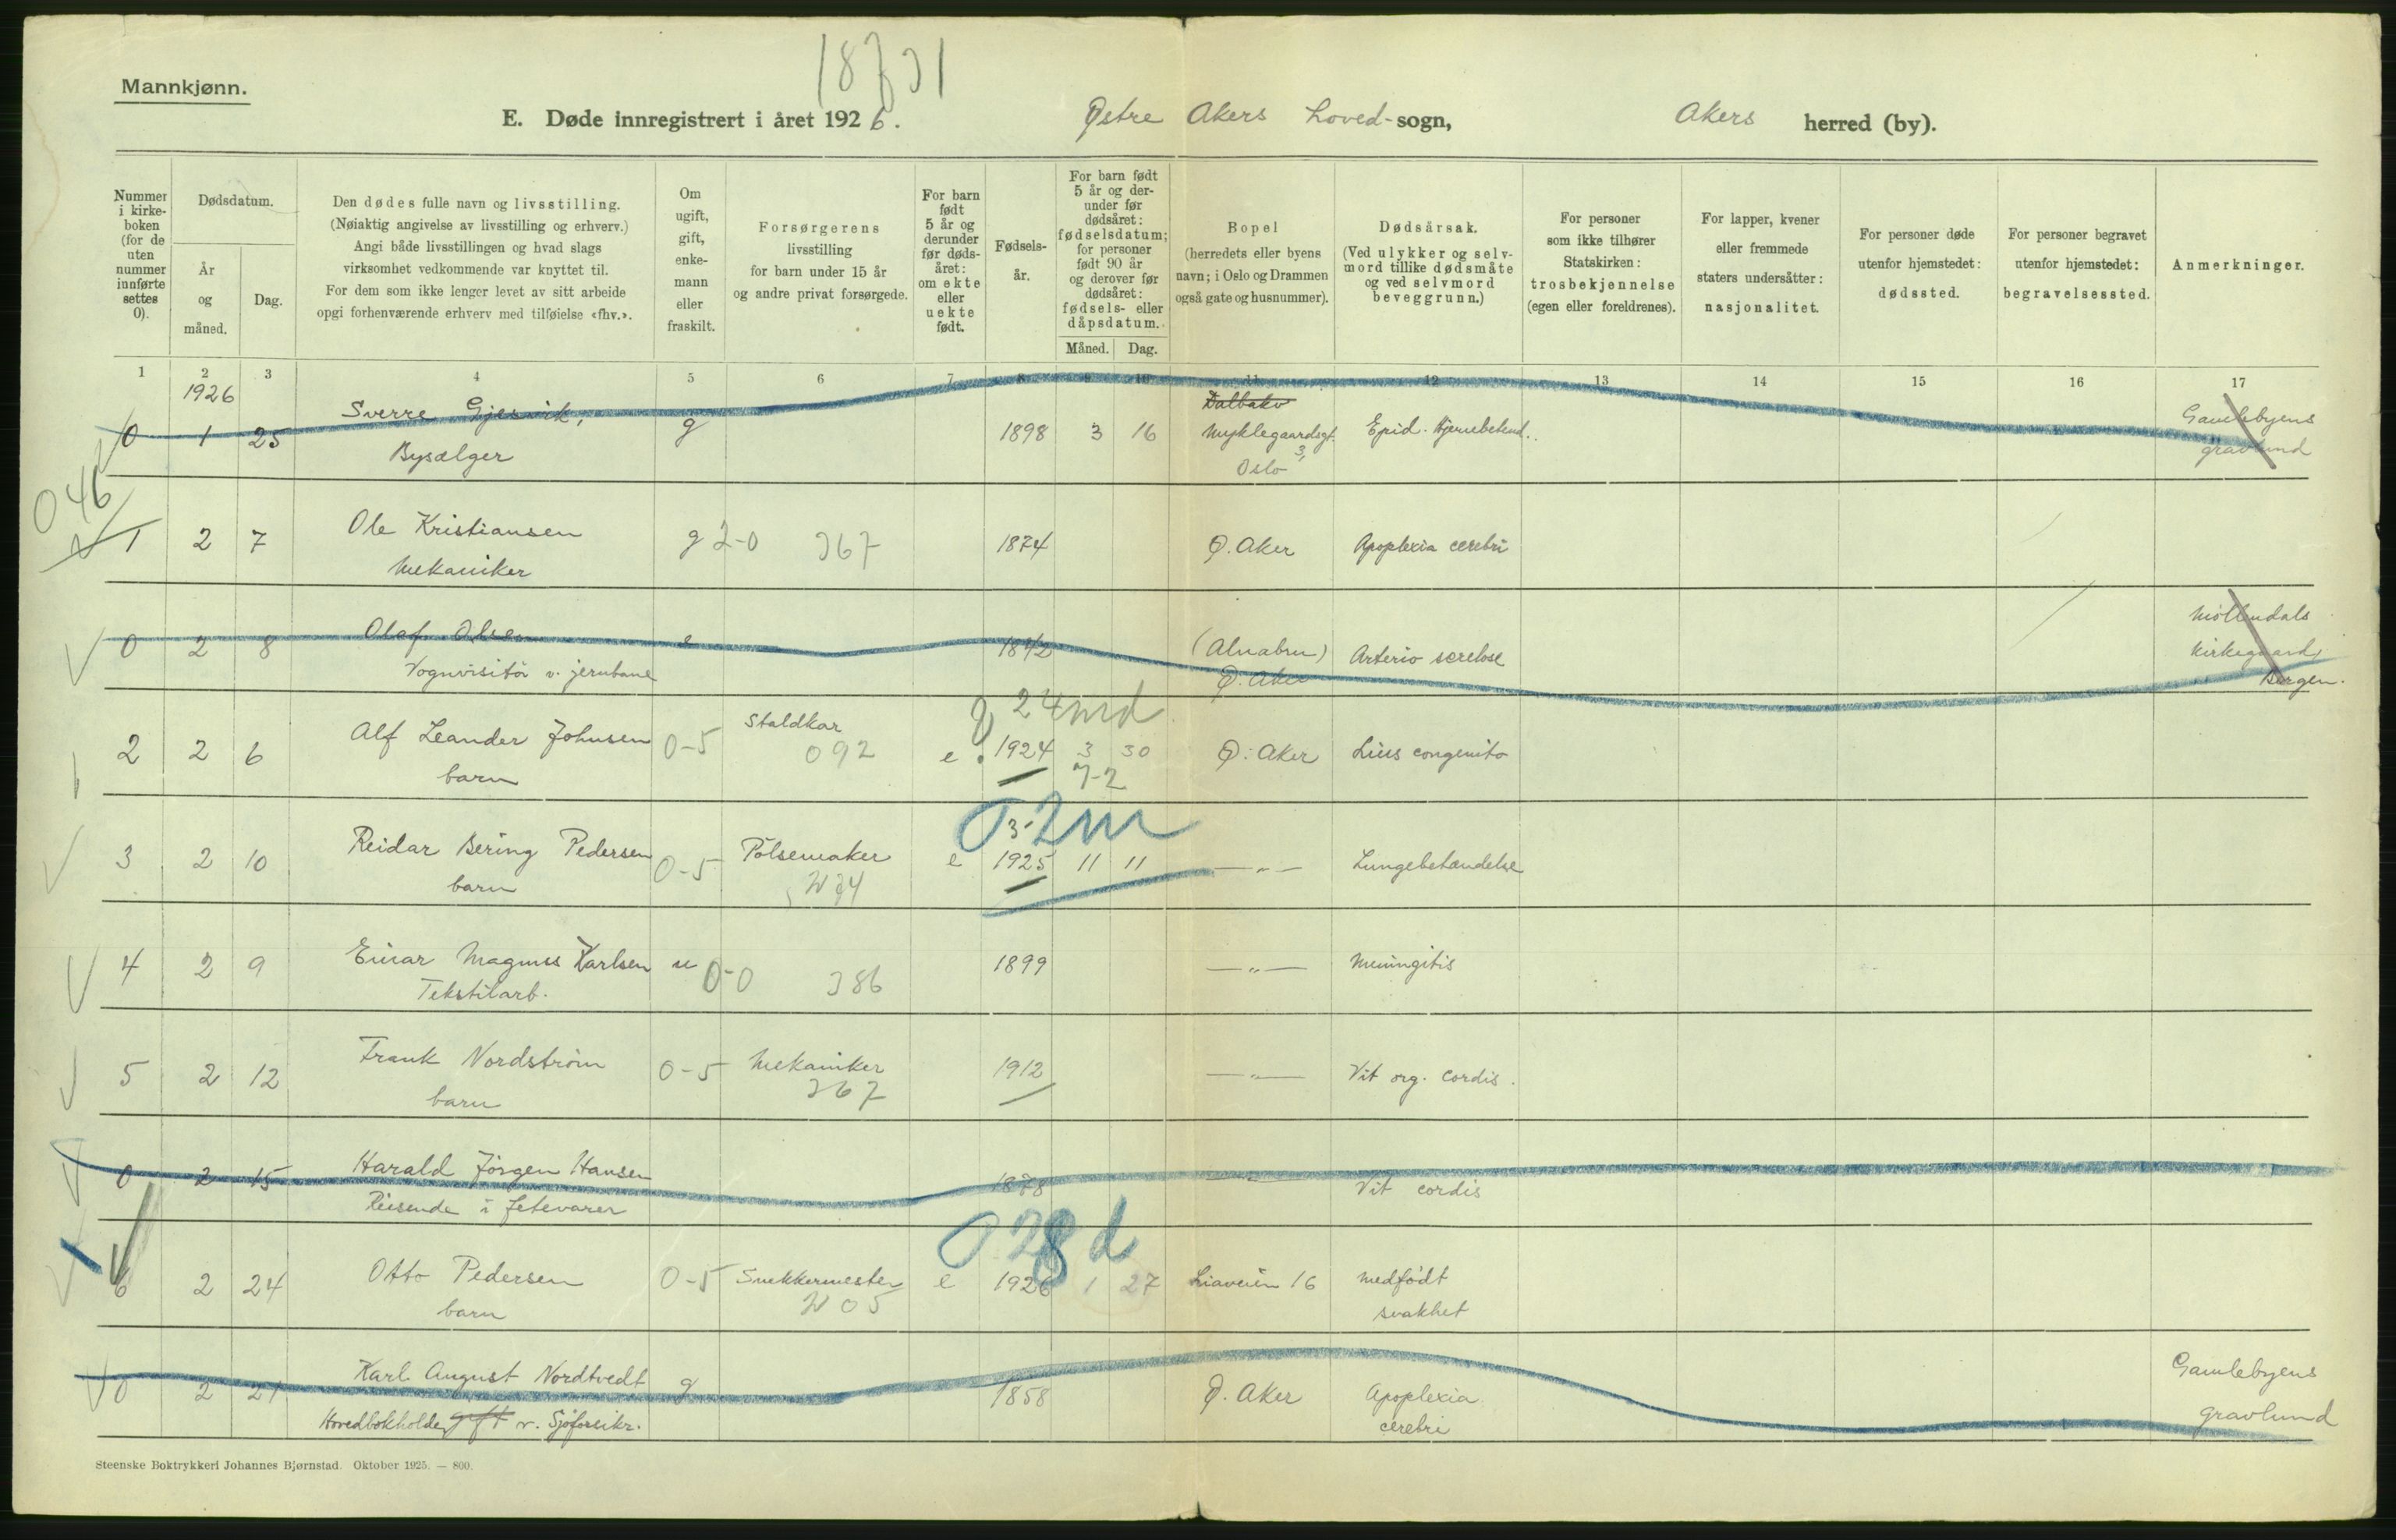 Mannkjønn.
E. Døde innregistrert i året 1926.
Østre Akers Hoved-sogn,
Akers herred (by).
Nummer i kirke-boken (for de uten nummer innførte settes 0).
Dødsdatum.
År og måned.
Dag.
Den dødes fulle navn og livsstilling.
(Nøiaktig angivelse av livsstilling og erhverv.)
Angi både livsstillingen og hvad slags
virksomhet vedkommende var knyttet til.
For dem som ikke lenger levet av sitt arbeide
opgi forhenværende erhverv med tilføielse «fhv.».
Om ugift, gift, enke-mann eller fraskilt.
Forsørgerens livsstilling for barn under 15 år og andre privat forsørgede.
For barn født 5 år og derunder før døds-året: om ekte eller uekte født.
Fødsels-år.
For barn født 5 år og der-under før dødsåret: fødselsdatum; for personer født 90 år og derover før dødsåret: fødsels- eller dåpsdatum.
Måned. Dag.
Bopel
(herredets eller byens navn; i Oslo og Drammen også gate og husnummer).
Dødsårsak.
(Ved ulykker og selv-mord tillike dødsmåte og ved selvmord beveggrunn.)
For personer som ikke tilhører Statskirken: trosbekjennelse (egen eller foreldrenes).
For lapper, kvener eller fremmede staters undersåtter: nasjonalitet.
For personer døde utenfor hjemstedet: dødssted.
For personer begravet utenfor hjemstedet: begravelsessted.
Anmerkninger.
1 2 3 4 5 6 7 8 9 10 11 12 13 14 15 16 17
1926
Dalbakv
0 1 25 Sverre Gjesvik, g 1898 3 16 Myklegaardsgt. 3, Epid. Hjernebetend.. Gamlebyens
Bysælger Oslo gravlund
046
1 2 7 Ole Kristiansen g 2-0 367 1874 Ø. Aker Apoplexia cerebri
Mekaniker
0 2 8 Olaf Olsen e 1842 (Alnabru) Arterio sclerose Möllendals
Vognvisitör v. jernbane Ø. Aker kirkegaard,
Bergen.
24 md
2 2 6 Alf Leander Johnsen 0-5 Staldkar 092 e 1924 3 30 Ø. Aker Lues congenita
barn 7-2
0 3-2m
3 2 10 Reidar Bering Pedersen 0-5 Pölsemaker e 1925 11 11 — „ — Lungebetændelse
barn
4 2 9 Einar Magnus Karlsen u 0-0 386 1899 — „ — Meningitis
Tekstilarb.
5 2 12 Frank Nordström 0-5 Mekaniker 367 1912 — „ — Vit org. cordis.
barn
0 2 15 Harald Jörgen Hansen 1878 — „ — Vit cordis
Reisende i fetevarer
0 28 d
6 2 24 Otto Pedersen 0-5 Snekkermester e 1926 1 27 Liaveien 16 medfödt
barn svakhet
0 2 21 Karl August Nordtvedt g 1858 Ø. Aker Apoplexia Gamlebyens
Hovedbokholder gift v. Sjöforsikr. cerebri gravlund
Steenske Boktrykkeri Johannes Bjørnstad. Oktober 1925. — 800.